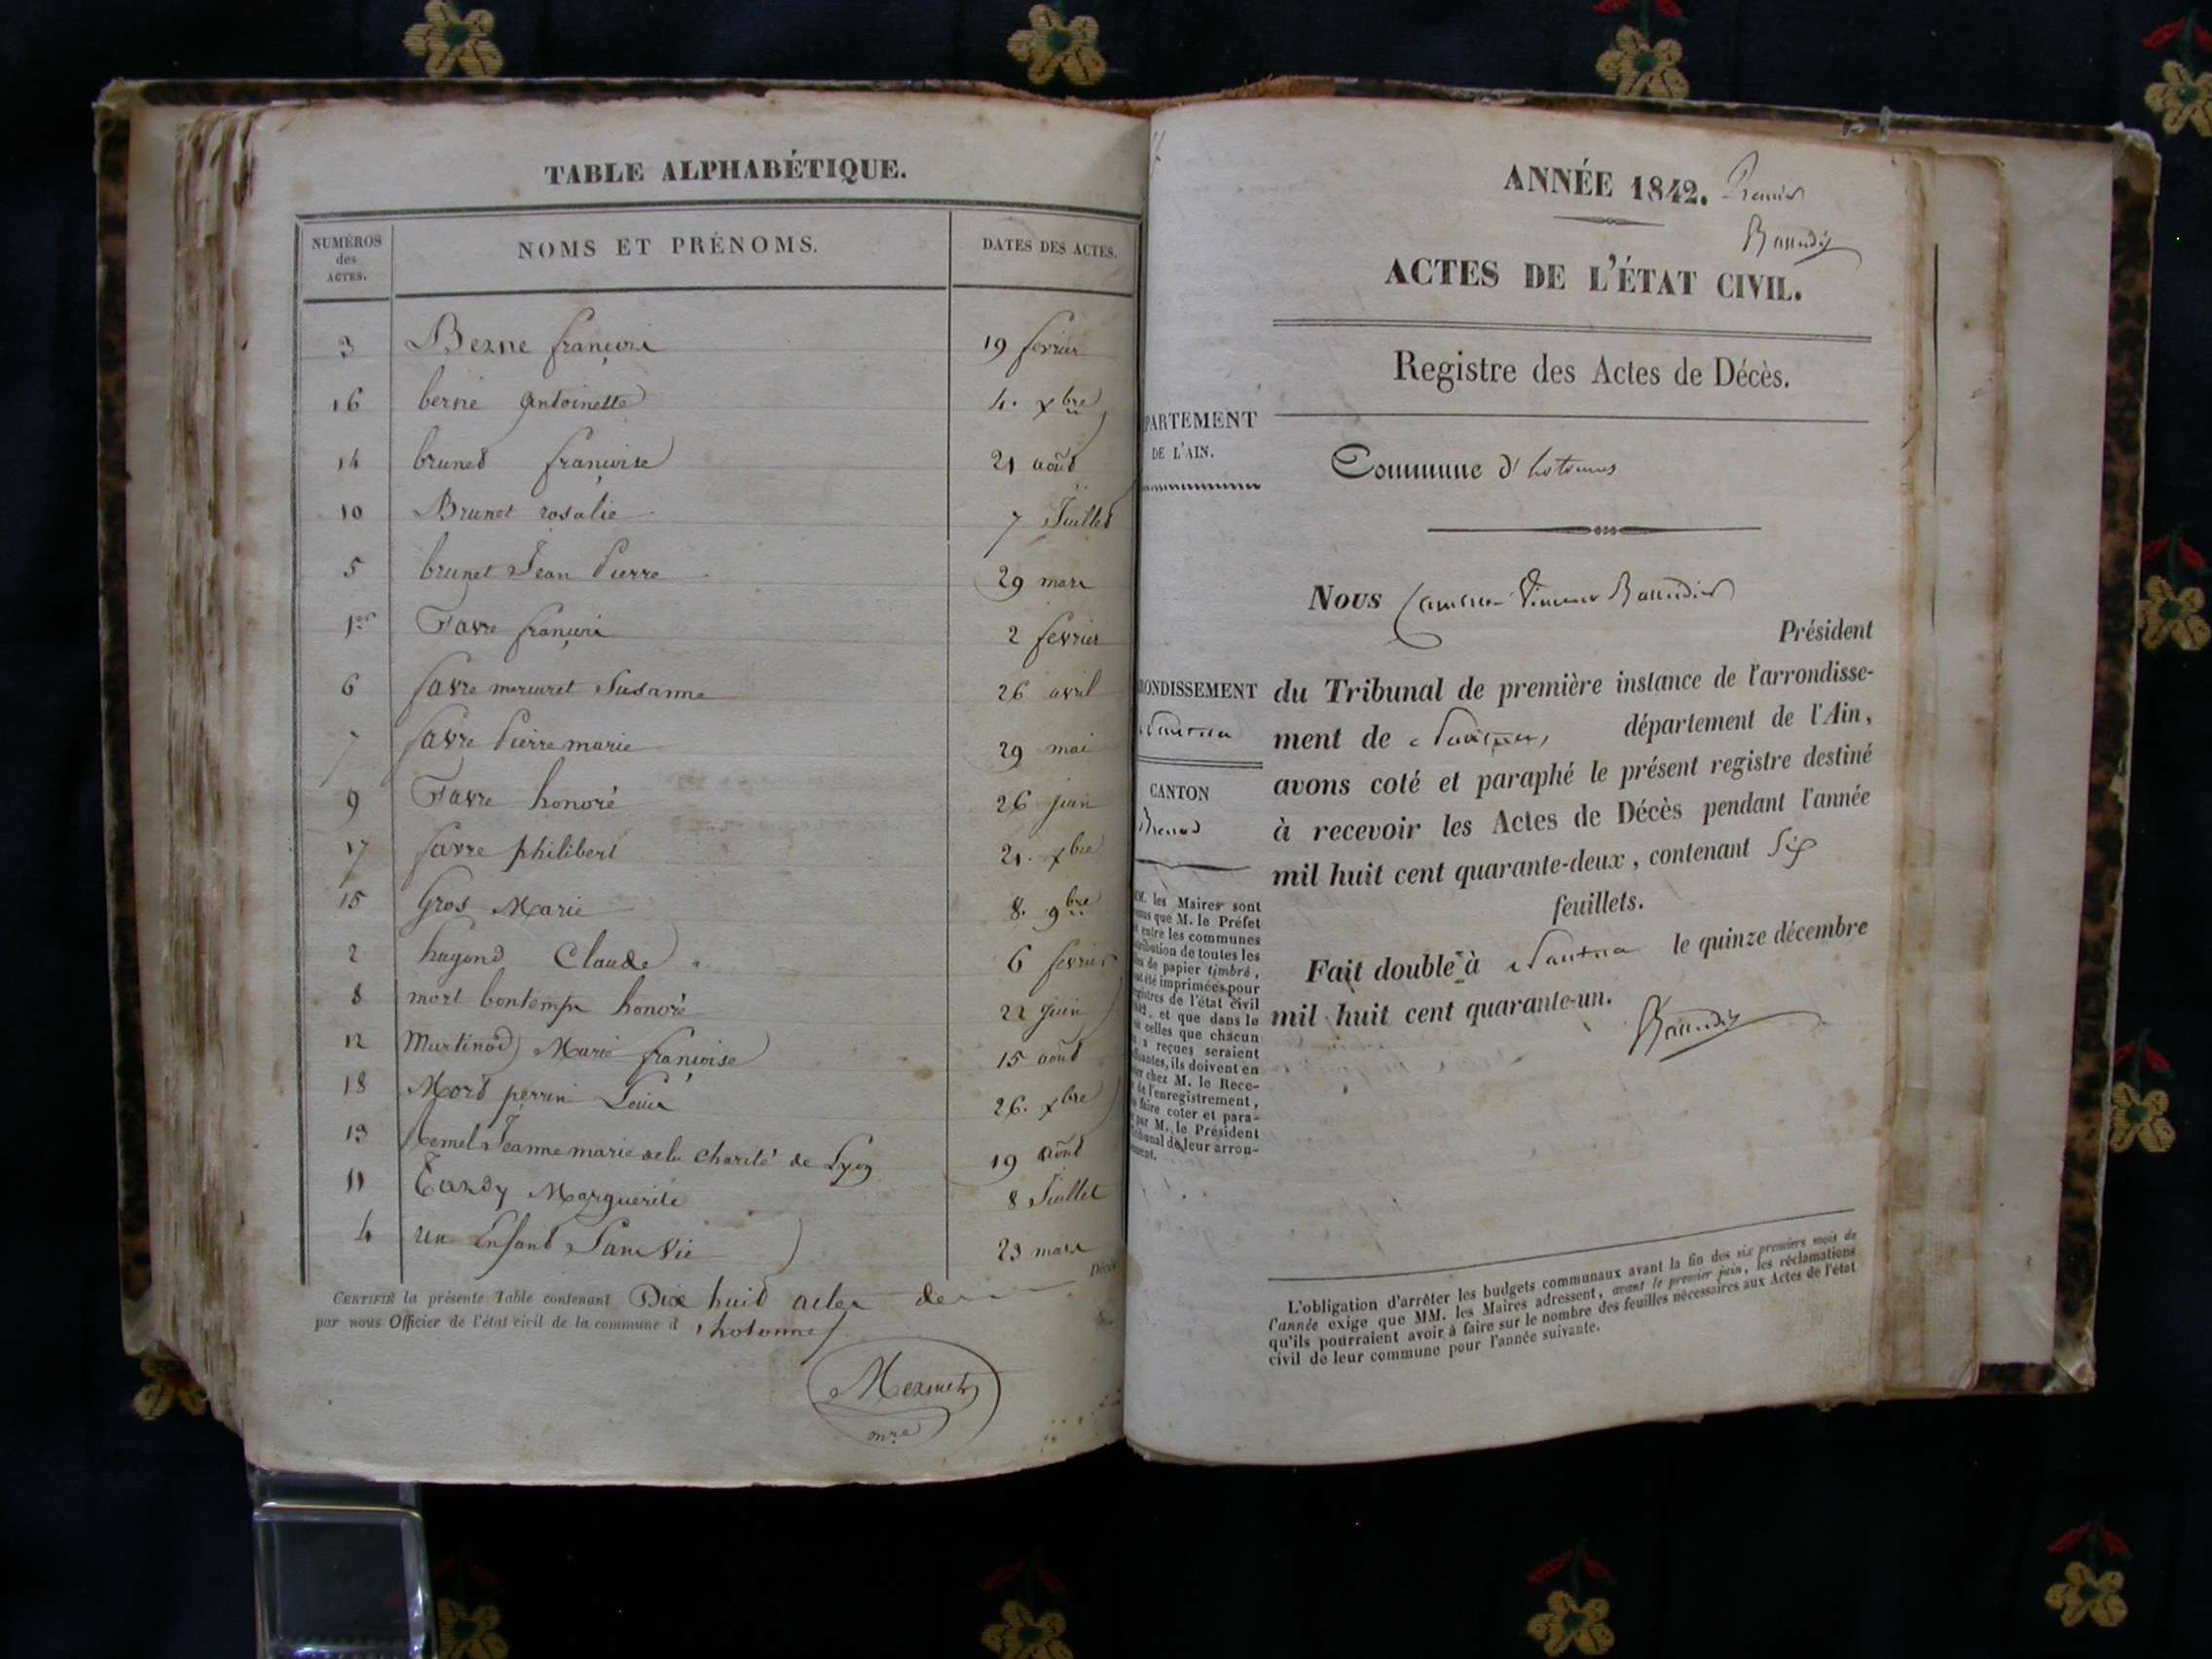 TABLE ALPHABÉTIQUE.
NUMÉROS
des
ACTES.
NOMS ET PRÉNOMS.
DATES DES ACTES.
3 Berne françois 19 fevrier
16 berne antoinette 4. xbre
14 brunet françoise 21 août
10 Brunet rosalie 7 Juillet
5 brunet Jean Pierre 29 mars
1er Favre françois 2 fevrier
6 favre mercuret Susanne 26 avril
7 favre Pierre marie 29 mai
9 Favre honoré 26 juin
17 favre philibert 21. xbre
15 Gros Marie 8. 9bre
2 hugond Claude 6 fevrier
8 mort bontemps honoré 22 juin
12 Martinod Marie françoise 15 août
18 Mort perrin Louis 26. xbre
13 Jeanne marie de la Charité de Lyon 19 août
11 Tardy Marguerite 8 Juillet
4 un Enfant Sans Vie 23 mars
CERTIFIÉ la présente Table contenant Dix huit actes de Décès
par nous Officier de l'état civil de la commune d'hotonnes
mre
ANNÉE 1842. Premier
Baudin
ACTES DE L'ÉTAT CIVIL.
Registre des Actes de Décès.
PARTEMENT
DE L'AIN.
Commune d'hotonnes
Nous
Président
RONDISSEMENT du Tribunal de première instance de l'arrondisse-
Nantua
ment de Nantua, département de l'Ain,
avons coté et paraphé le présent registre destiné
CANTON
à recevoir les Actes de Décès pendant l'année
Brenod
mil huit cent quarante-deux, contenant Six
feuillets.
MM. les Maires sont
que M. le Préfet
entre les communes
de toutes les
de papier timbré,
été imprimées pour
registres de l'état civil
et que dans le
celles que chacun
a reçues seraient
ils doivent en
chez M. le Rece-
de l'enregistrement,
faire coter et para-
par M. le Président
Tribunal de leur arron-
Fait double à Nantua le quinze décembre
mil huit cent quarante-un.
L'obligation d'arrêter les budgets communaux avant la fin des six premiers mois de
l'année exige que MM. les Maires adressent, avant le premier juin, les réclamations
qu'ils pourraient avoir à faire sur le nombre des feuilles nécessaires aux Actes de l'état
civil de leur commune pour l'année suivante.